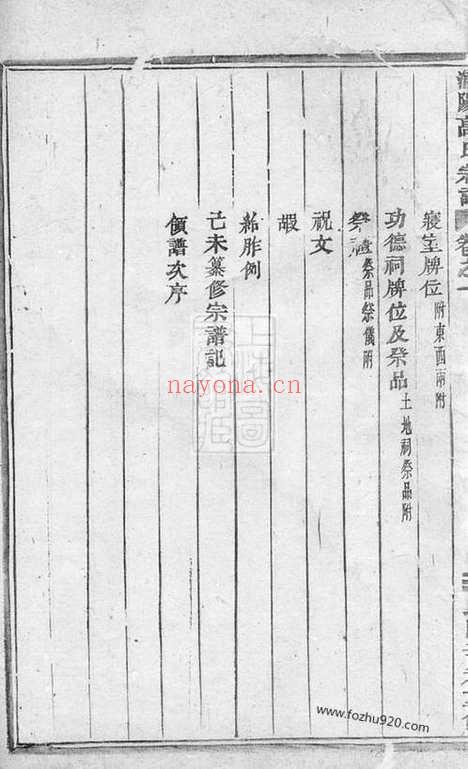 高氏宗譜 卷之一
寢室牌位 附東西兩附
功德祠牌位及祭品 土地祠祭品附
祭 祭品祭儀附
祝文
嘏
胙例
己未纂修宗譜記
領譜次序
nayona.cn
www.fozhu920.com